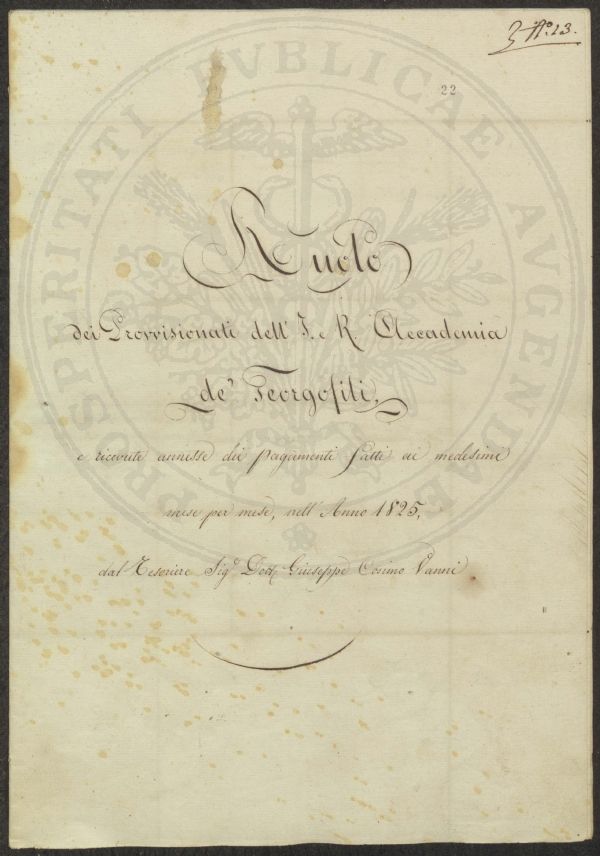 N.º 13.
22
PROSPERITATI PUBLICAE AUGENDAE
Ruolo
dei Provvisionati dell' I. e R. Accademia
de' Georgofili,
e ricevute annesse dei pagamenti fatti ai medesimi
mese per mese, nell' Anno 1825,
dal Tesoriere Sigr. Dott. Giuseppe Cosimo Vanni